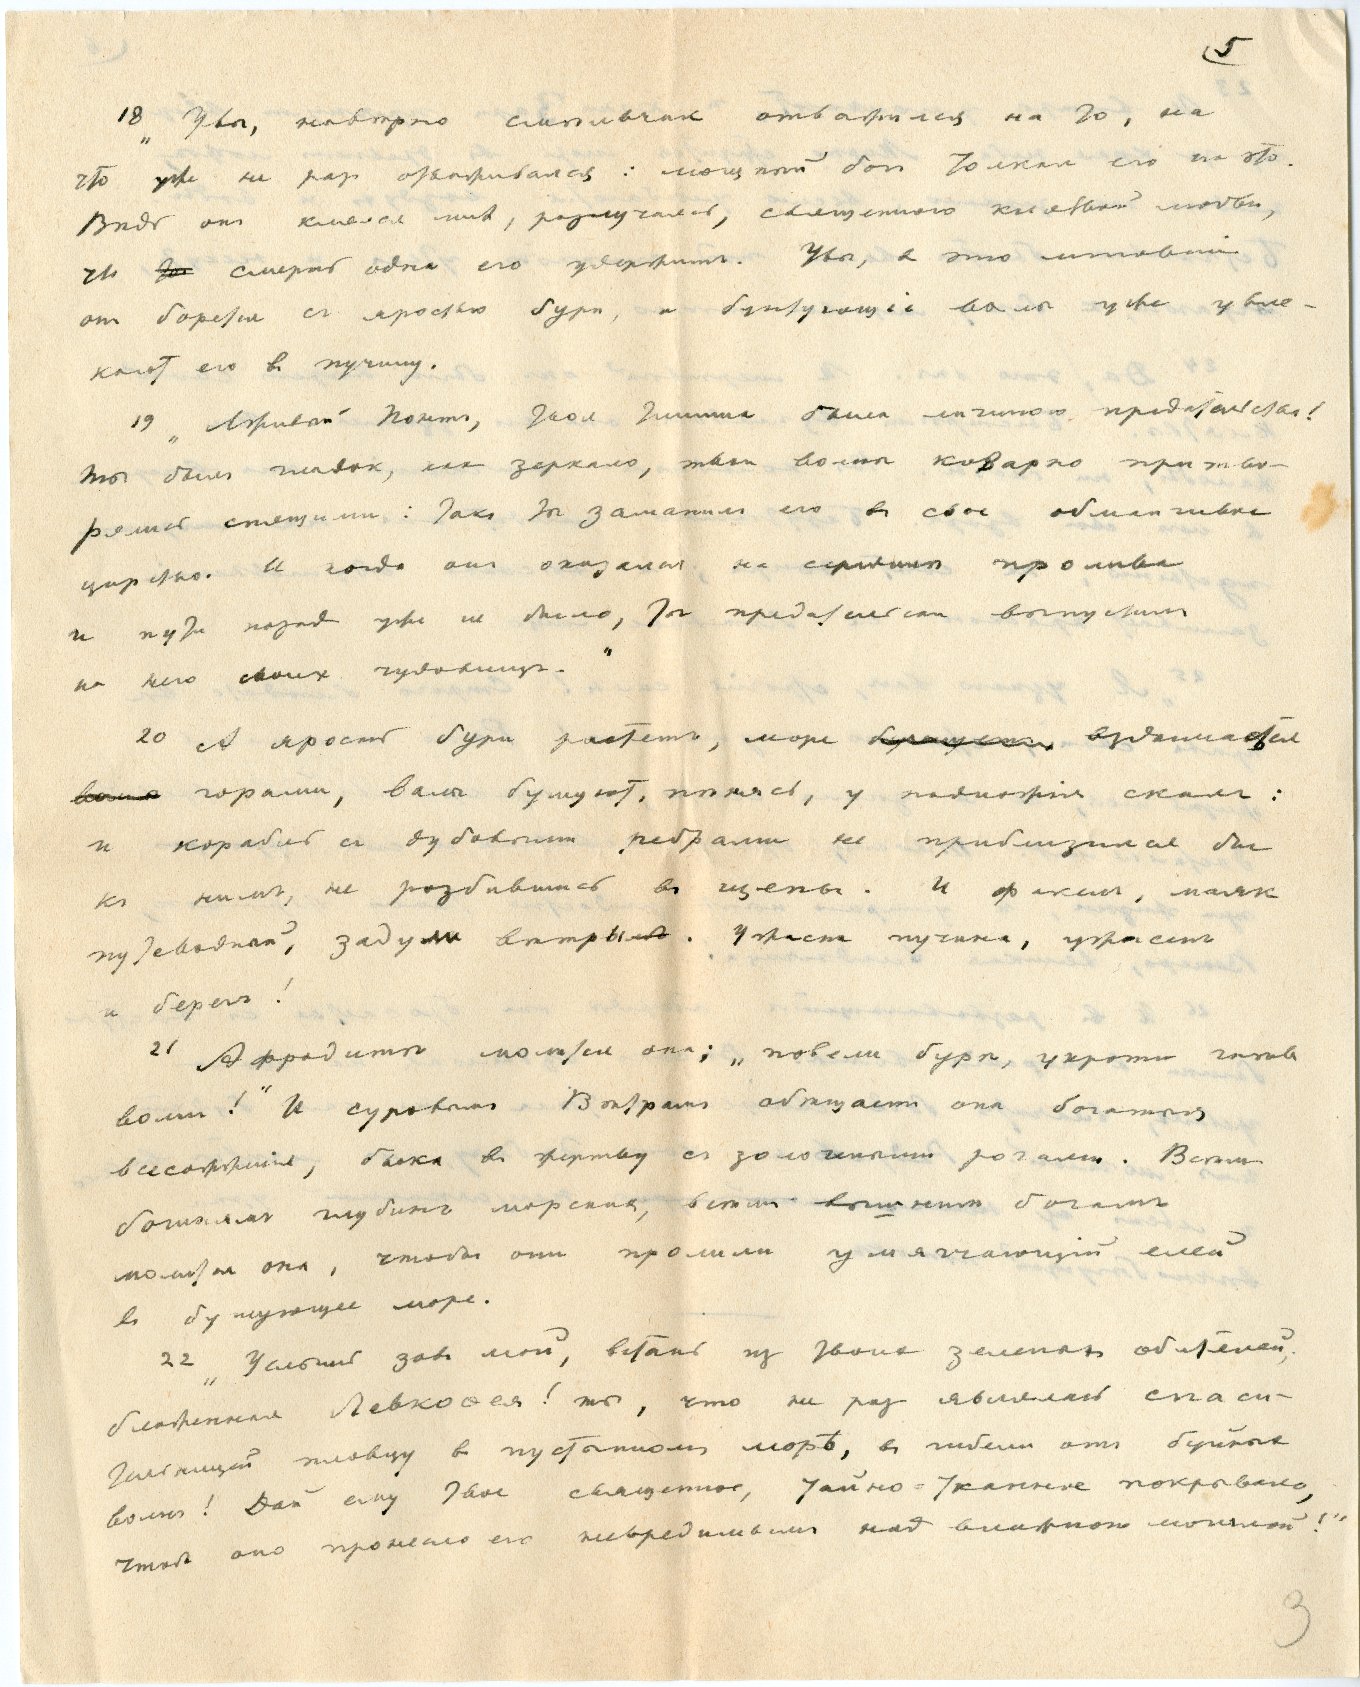 5
18 „Увы, навѣрно смѣльчак отважился на то, на
что уже не раз отваживался: мощный богъ толкал его на это.
Вѣдь онъ клялся мнѣ, разлучаясь, священною клятвой любви,
что смерть одна его удержитъ. Увы, в это мгновеніе
онъ борется съ яростью бури, и бунтующіе валы уже увле-
кают его в пучину.
19 „Лживый Понтъ, твоя тишина была личиною предательства!
Ты былъ гладок, как зеркало, твои волны коварно притво-
рялись спящими: такъ ты заманилъ его въ свое обманчивое
царство. И когда онъ оказался на серединѣ пролива
и пути назад уже не было, ты предательски выпустилъ
на него своих чудовищъ."
20 А ярость бури растетъ, море вздымается
горами, валы бушуют, пѣнясь, у подножія скалъ:
и корабль съ дубовыми ребрами не приблизился бы
къ нимъ, не разбившись въ щепы. И факелъ, маяк
путеводный, задули вѣтры. Ужасна пучина, ужасенъ
и берегъ!
21 Афродитѣ молится она; „повели бурѣ, укроти гнѣвъ
волнъ!" И суровымъ Вѣтрамъ обѣщаетъ она богатыя
всесожженія, быка въ жертву съ золочеными рогами. Всѣмъ
богинямъ глубинъ морскихъ, всѣмъ вышнимъ богамъ
молится она, чтобы они пролили умягчающій елей
въ бушующее море.
22 „Услышь зовъ мой, встань из твоих зеленых обителей,
блаженная Левкоѳея! ты, что не раз являлась спаси-
тельницей пловцу в пустынном морѣ, въ гибели отъ буйных
волнъ! Дай ему твое священное, тайно-тканное покрывало,
чтобъ оно пронесло его невредимымъ над влажною могилой!"
3